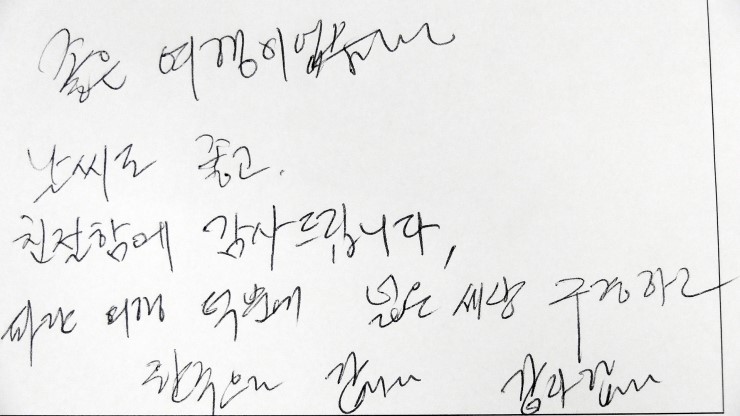 좋은 여행이었습니다
날씨도 좋고.
친절함에 감사드립니다,
파란 여행 덕분에 넓은 세상 구경하고
한국으로 갑니다 감사합니다